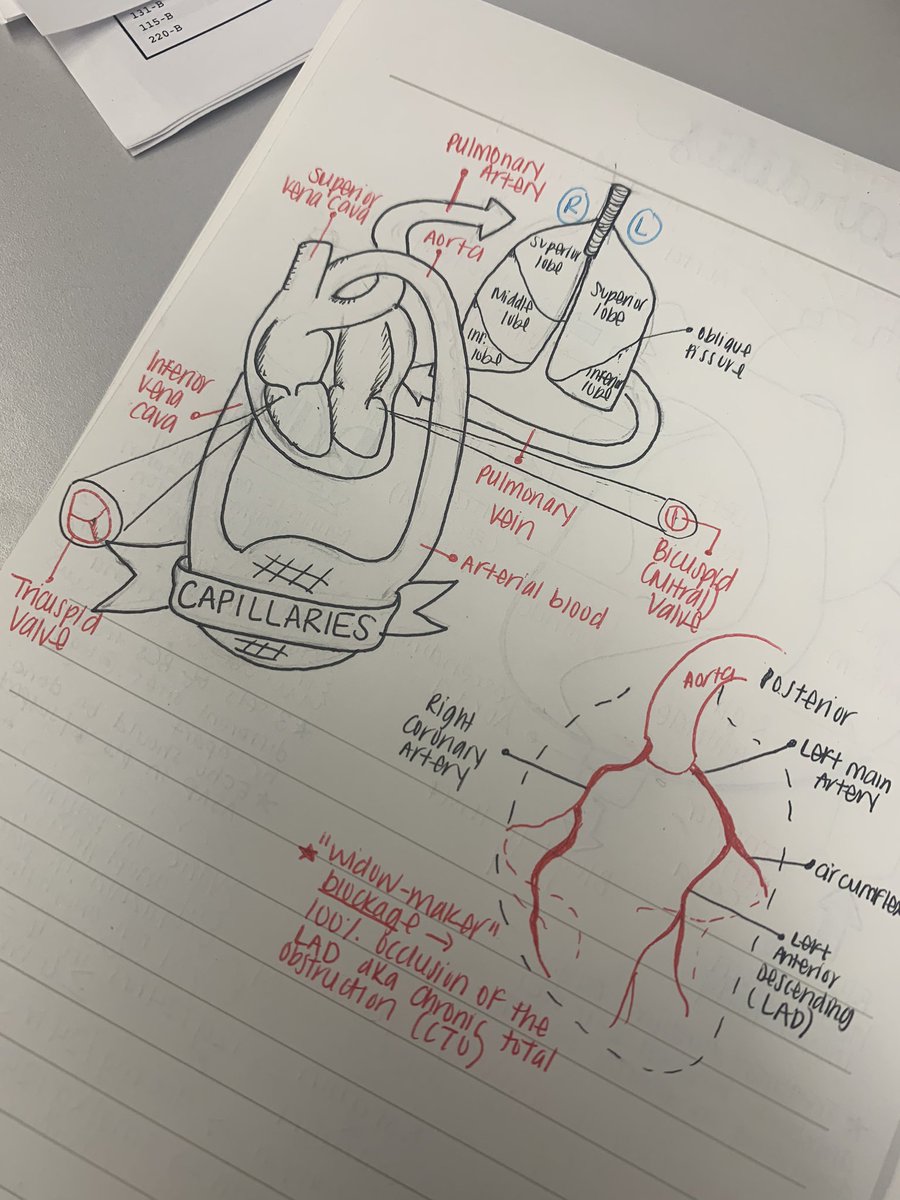 131-B
115-B
220-B
Pulmonary
Artery
Superior
vena cava
Aorta
R
L
Superior
lobe
Middle
lobe
Inf.
lobe
Superior
lobe
Inferior
lobe
Oblique
Fissure
Inferior
vena
cava
Pulmonary
vein
Bicuspid
(Mitral)
Valve
Arterial blood
Tricuspid
Valve
CAPILLARIES
Aorta
Posterior
Right
Coronary
Artery
Left main
Artery
circumflex
Left
Anterior
Descending
(LAD)
★ "widow-maker"
blockage →
100% occlusion of the
LAD aka chronic total
obstruction (CTO)